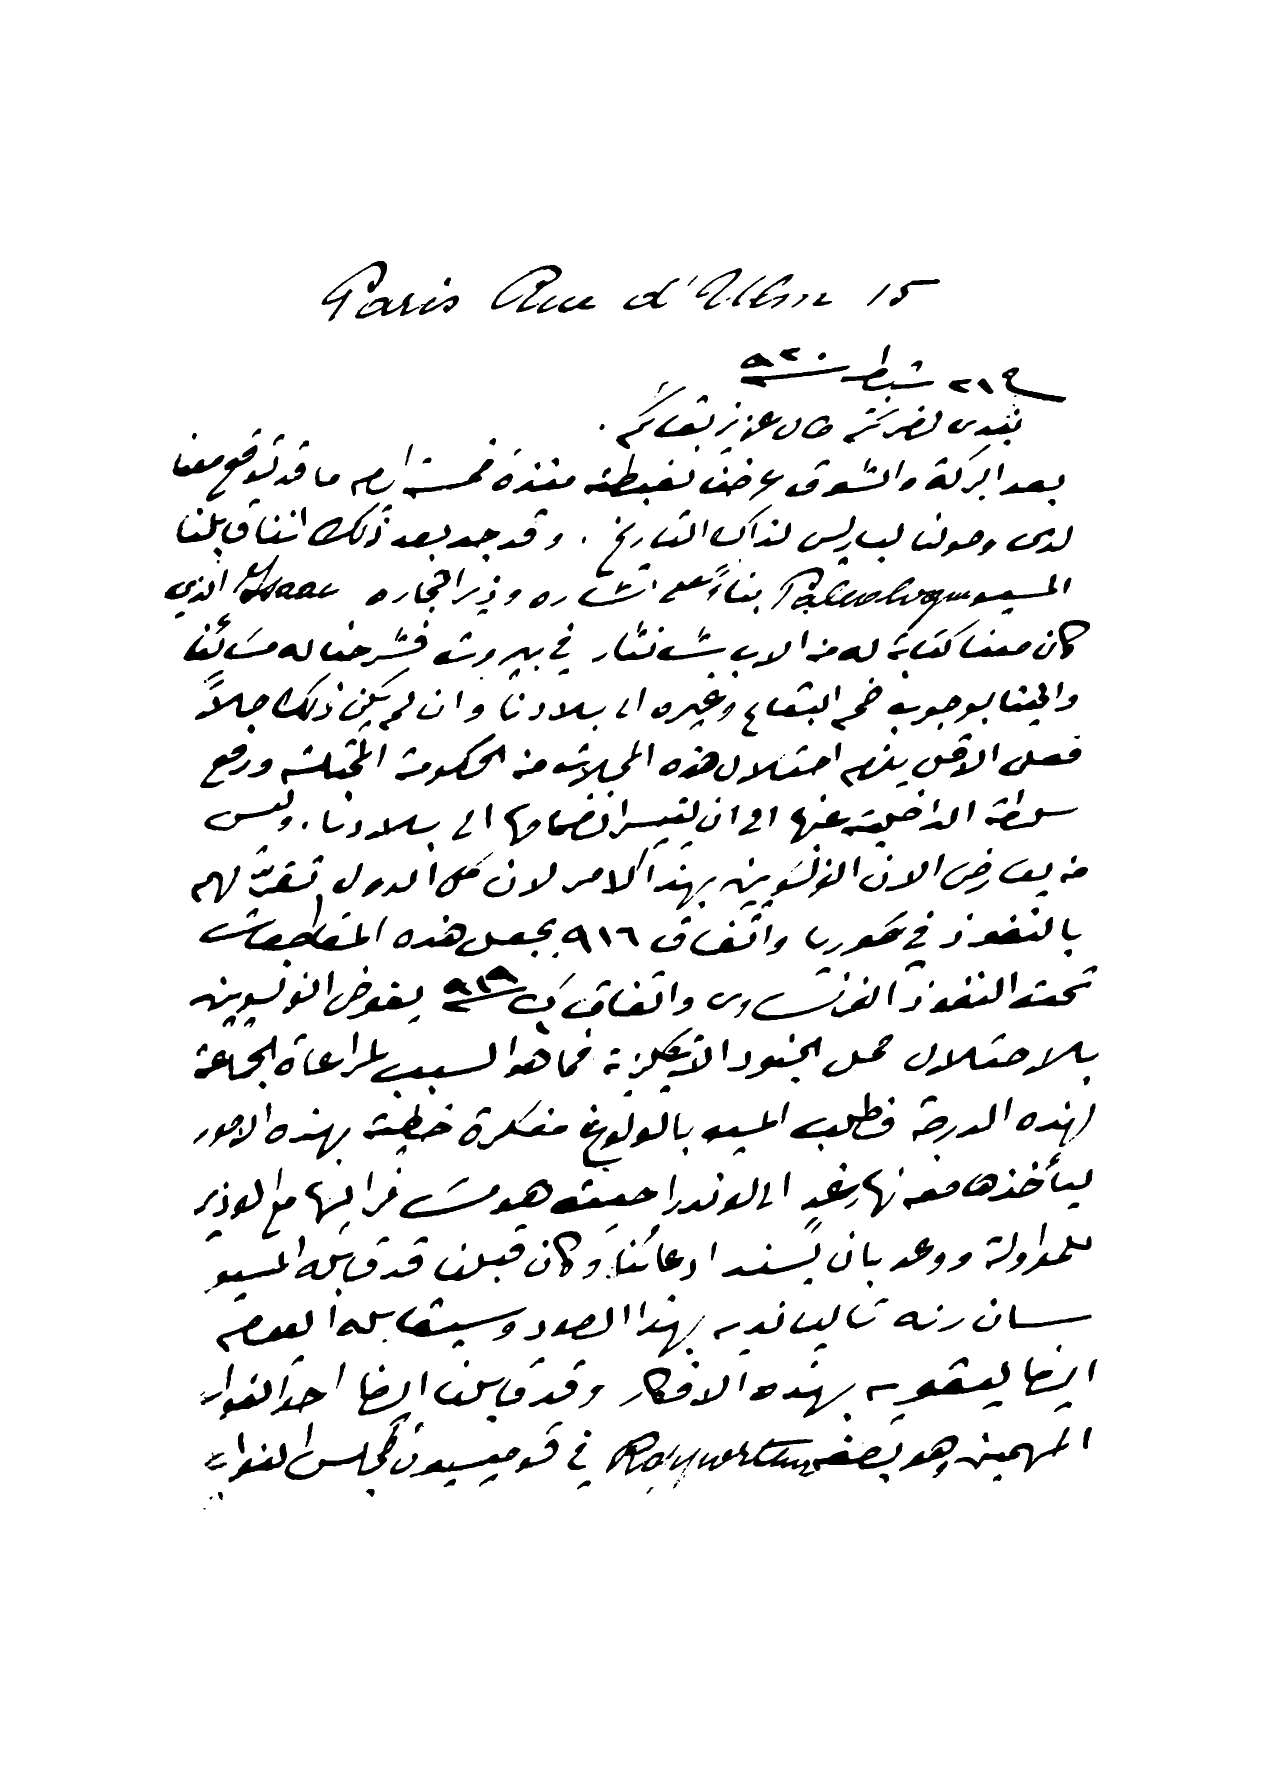 Paris Rue d'Ulm 15
شباط ٩٢٠
نفدي لحضرتكم طال عزيز بقاكم .
بعد البركة والشوق عرضنا لغبطته منذ خمسة ايام ما قد توقع معنا
لدى وصولنا لباريس لذاك التاريخ . وقد جد بعد ذلك اننا قابلنا
المسيو Paleologue بناءً على اشاره وزير التجاره Isaac الذي
كان معنا كتابة له من الاب شانتار في بيروت فشرحنا له مسائلنا
والحينا بوجوب ضم البقاع وغيره الى بلادنا وان لم يكن ذلك حالاً
فعلى الاقل يلزم احتلال هذه المحلات من الحكومة المحتلة ورفع
سلطة الداخلية عنها الى ان يتيسر انضمامها الى بلادنا . وليس
من يعارض الان الفرنسويين بهذا الامر لان كل الدول تقرّ لهم
بالنفوذ في سوريا واتفاق ٩١٦ يجعل هذه المقاطعات
تحت النفوذ الفرنساوي واتفاق ٩١٩ يفوض الفرنسويين
بالاحتلال محل الجنود الانكليزية فما هو السبب لمراعاة الجماعة
لهذه الدرجة فطلب المسيو بالولوغ مفكرة خطية بهذه الامور
ليأخذها معه نهار غدٍ الى لوندرا حيث هو مسافر اليها مع الوزير
للمداولة ووعد بان يسند ادعائنا وكان قبلنا قد قابله المسيو
سان رنه تالياندیه بهذا الصدد وسيقابله اليوم
ايضا ليقويه بهذه الافكار وقد قابلنا ايضا احد النواب
المهمين وهو بصفة Rapporteur في قوميسيون مجلس النواب